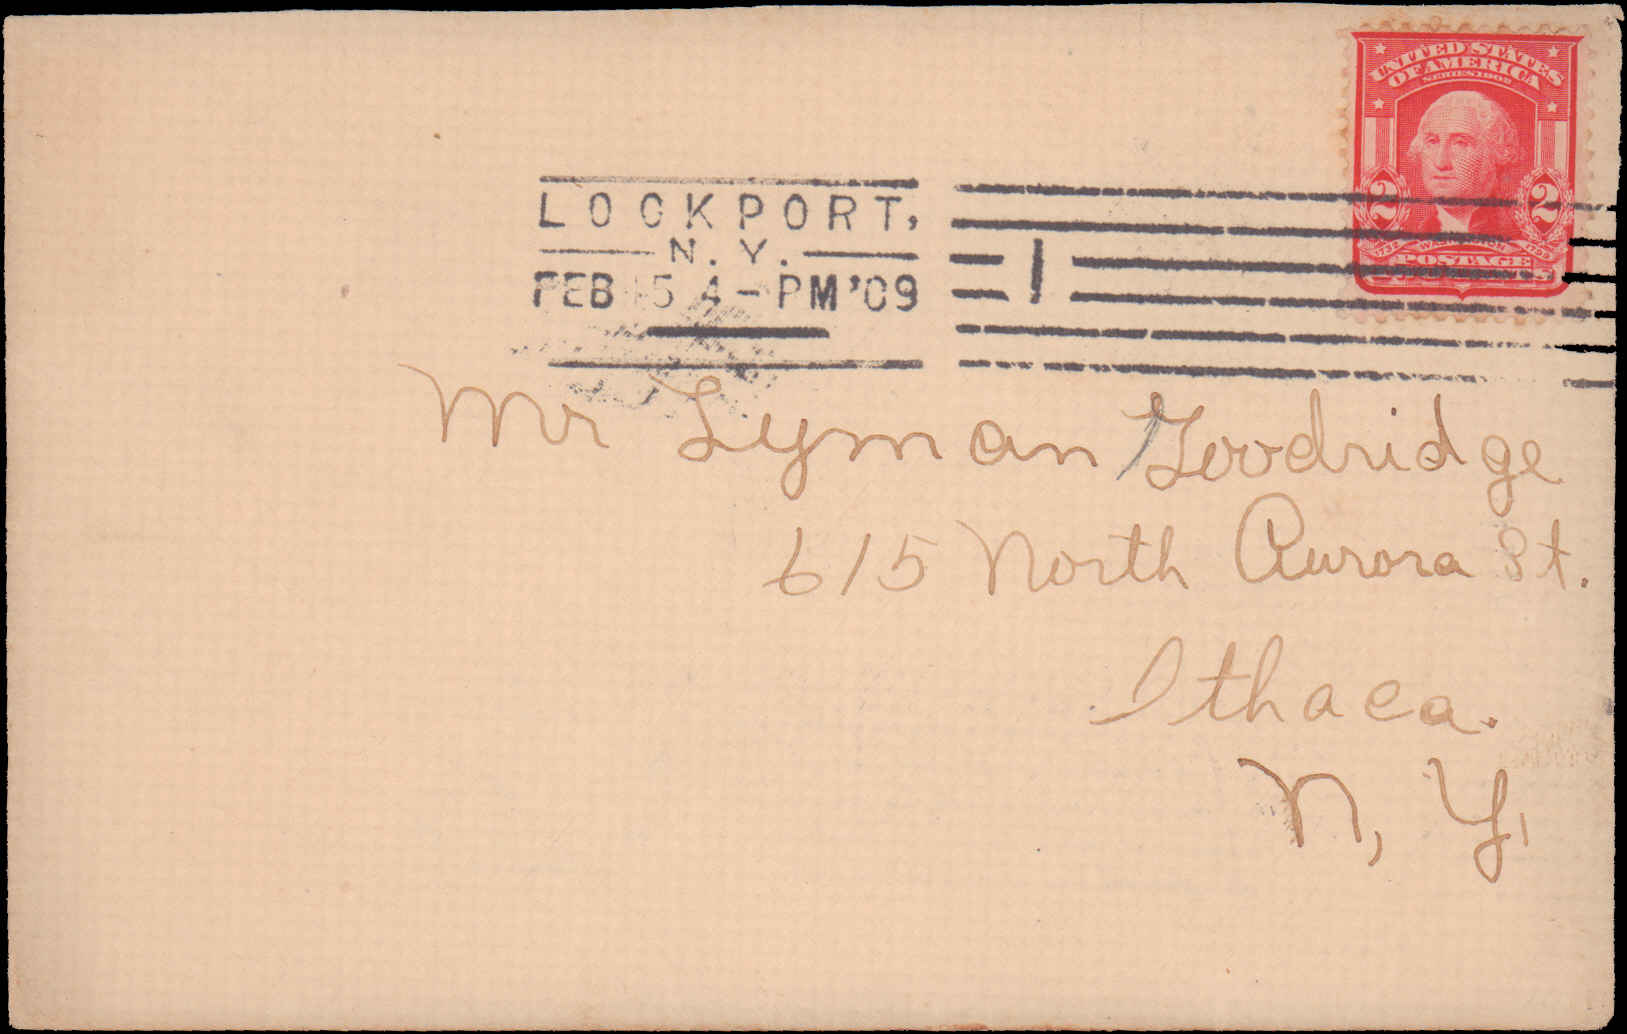 UNITED STATES
OF AMERICA
SERIES 1902
2 2
1732 WASHINGTON 1799
POSTAGE
LOCKPORT,
N. Y.
FEB 15 4 - PM '09
1
Mr Lyman Goodridge
615 North Aurora St.
Ithaca.
N, Y,